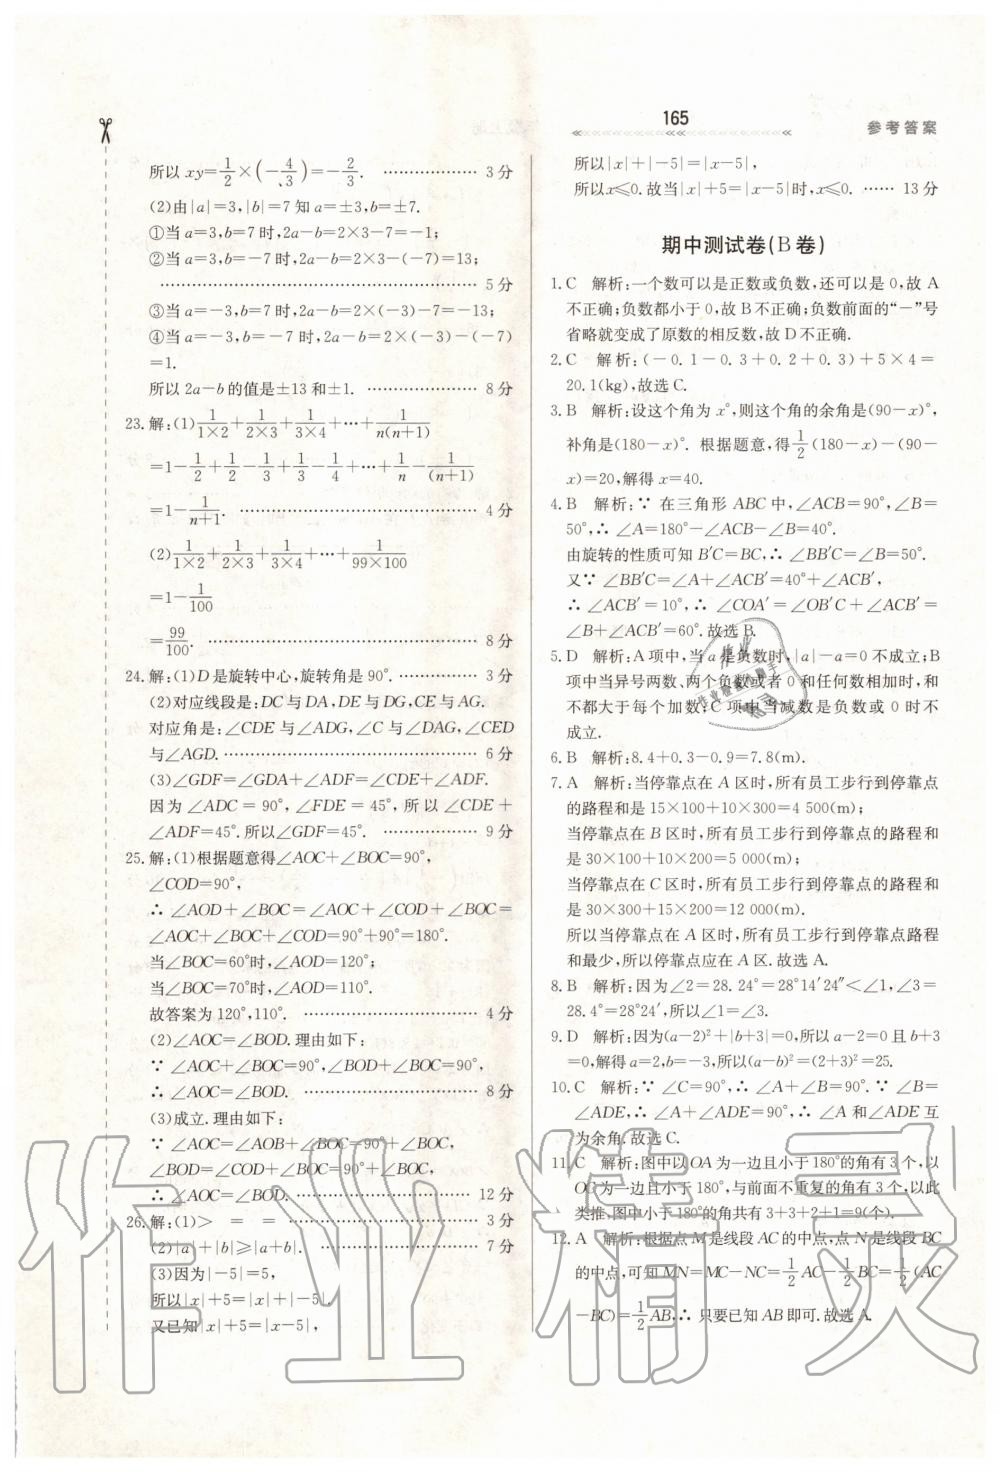 165
参考答案
所以 xy=1/2×(-4/3)=-2/3. ……………… 3 分
(2)由|a|=3,|b|=7 知 a=±3,b=±7.
①当 a=3,b=7 时,2a-b=2×3-7=-1;
②当 a=3,b=-7 时,2a-b=2×3-(-7)=13;
……………………………………………… 5 分
③当 a=-3,b=7 时,2a-b=2×(-3)-7=-13;
④当 a=-3,b=-7 时,2a-b=2×(-3)-(-7)
=1.
所以 2a-b 的值是±13 和±1. ………………… 8 分
23.解:(1)1/(1×2)+1/(2×3)+1/(3×4)+…+1/(n(n+1))
=1-1/2+1/2-1/3+1/3-1/4+…+1/n-1/(n+1)
=1-1/(n+1). ……………………………………… 4 分
(2)1/(1×2)+1/(2×3)+1/(3×4)+…+1/(99×100)
=1-1/100
=99/100. ……………………………………………… 8 分
24.解:(1)D 是旋转中心,旋转角是 90°. …………… 3 分
(2)对应线段是:DC 与 DA,DE 与 DG,CE 与 AG.
对应角是:∠CDE 与∠ADG,∠C 与∠DAG,∠CED
与∠AGD. ………………………………………… 6 分
(3)∠GDF=∠GDA+∠ADF=∠CDE+∠ADF.
因为∠ADC=90°,∠FDE=45°,所以∠CDE+
∠ADF=45°.所以∠GDF=45°. ……………… 9 分
25.解:(1)根据题意得∠AOC+∠BOC=90°,
∠COD=90°,
∴ ∠AOD+∠BOC=∠AOC+∠COD+∠BOC=
∠AOC+∠BOC+∠COD=90°+90°=180°.
当∠BOC=60°时,∠AOD=120°;
当∠BOC=70°时,∠AOD=110°.
故答案为 120°,110°. ……………………………… 4 分
(2)∠AOC=∠BOD.理由如下:
∵ ∠AOC+∠BOC=90°,∠BOD+∠BOC=90°,
∴ ∠AOC=∠BOD. ……………………………… 8 分
(3)成立.理由如下:
∵ ∠AOC=∠AOB+∠BOC=90°+∠BOC,
∠BOD=∠COD+∠BOC=90°+∠BOC,
∴ ∠AOC=∠BOD. ……………………………… 12 分
26.解:(1)> = = ……………………………… 3 分
(2)|a|+|b|≥|a+b|. ……………………………… 7 分
(3)因为|-5|=5,
所以|x|+5=|x|+|-5|.
又已知|x|+5=|x-5|,
所以|x|+|-5|=|x-5|,
所以x≤0.故当|x|+5=|x-5|时,x≤0. …… 13 分
期中测试卷(B 卷)
1.C 解析:一个数可以是正数或负数,还可以是 0,故 A
不正确;负数都小于 0,故 B 不正确;负数前面的“-”号
省略就变成了原数的相反数,故 D 不正确.
2.C 解析:(-0.1-0.3+0.2+0.3)+5×4=
20.1(kg),故选 C.
3.B 解析:设这个角为 x°,则这个角的余角是(90-x)°,
补角是(180-x)°. 根据题意,得1/2(180-x)-(90-
x)=20,解得 x=40.
4.B 解析:∵ 在三角形 ABC 中,∠ACB=90°,∠B=
50°,∴ ∠A=180°-∠ACB-∠B=40°.
由旋转的性质可知 B′C=BC,∴ ∠BB′C=∠B=50°.
又∵ ∠BB′C=∠A+∠ACB′=40°+∠ACB′,
∴ ∠ACB′=10°,∴ ∠COA′=∠OB′C+∠ACB′=
∠B+∠ACB′=60°.故选 B.
5.D 解析:A 项中,当 a 是负数时,|a|-a=0 不成立;B
项中当异号两数、两个负数或者 0 和任何数相加时,和
不都大于每一个加数;C 项中当减数是负数或 0 时不
成立.
6.B 解析:8.4+0.3-0.9=7.8(m).
7.A 解析:当停靠点在 A 区时,所有员工步行到停靠点
的路程和是 15×100+10×300=4 500(m);
当停靠点在 B 区时,所有员工步行到停靠点的路程和
是 30×100+10×200=5 000(m);
当停靠点在 C 区时,所有员工步行到停靠点的路程和
是 30×300+15×200=12 000(m).
所以当停靠点在 A 区时,所有员工步行到停靠点路程
和最少,所以停靠点应在 A 区.故选 A.
8.B 解析:因为∠2=28.24°=28°14′24″<∠1,∠3=
28.4°=28°24′,所以∠1=∠3.
9.D 解析:因为(a-2)²+|b+3|=0,所以 a-2=0 且 b+3
=0,解得 a=2,b=-3,所以(a-b)²=(2+3)²=25.
10.C 解析:∵ ∠C=90°,∴ ∠A+∠B=90°.∵ ∠B=
∠ADE,∴ ∠A+∠ADE=90°,∴ ∠A 和∠ADE 互
为余角.故选 C.
11.C 解析:图中以 OA 为一边且小于 180°的角有 3 个,以
OC 为一边且小于 180°,与前面不重复的角有 3 个,以此
类推,图中小于 180°的角共有 3+3+2+1=9(个).
12.A 解析:根据点 M 是线段 AC 的中点,点 N 是线段 BC
的中点,可知 MN=MC-NC=1/2AC-1/2BC=1/2(AC
-BC)=1/2AB,∴ 只要已知 AB 即可.故选 A.
作业精灵